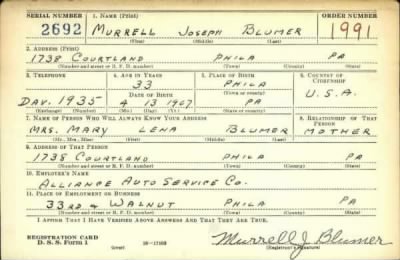 SERIAL NUMBER 1. NAME (Print) ORDER NUMBER
2692 MURRELL JOSEPH BLUMER 1991
(First) (Middle) (Last)
2. ADDRESS (Print)
1738 COURTLAND PHILA PA
(Number and street or R. F. D. number) (Town) (County) (State)
3. TELEPHONE 4. AGE IN YEARS 5. PLACE OF BIRTH 6. COUNTRY OF CITIZENSHIP
33 PHILA
DATE OF BIRTH (Town or county)
DAV. 1935 4 13 1907 PA U.S.A.
(Exchange) (Number) (Mo.) (Day) (Yr.) (State or country)
7. NAME OF PERSON WHO WILL ALWAYS KNOW YOUR ADDRESS 8. RELATIONSHIP OF THAT PERSON
MRS. MARY LENA BLUMER MOTHER
(Mr., Mrs., Miss) (First) (Middle) (Last)
9. ADDRESS OF THAT PERSON
1738 COURTLAND PHILA PA
(Number and street or R. F. D. number) (Town) (County) (State)
10. EMPLOYER'S NAME
ALLIANCE AUTO SERVICE CO.
11. PLACE OF EMPLOYMENT OR BUSINESS
33RD & WALNUT PHILA PA
(Number and street or R. F. D. number) (Town) (County) (State)
I AFFIRM THAT I HAVE VERIFIED ABOVE ANSWERS AND THAT THEY ARE TRUE.
REGISTRATION CARD
D. S. S. Form 1 (over) Murrell J. Blumer
(Registrant's signature)